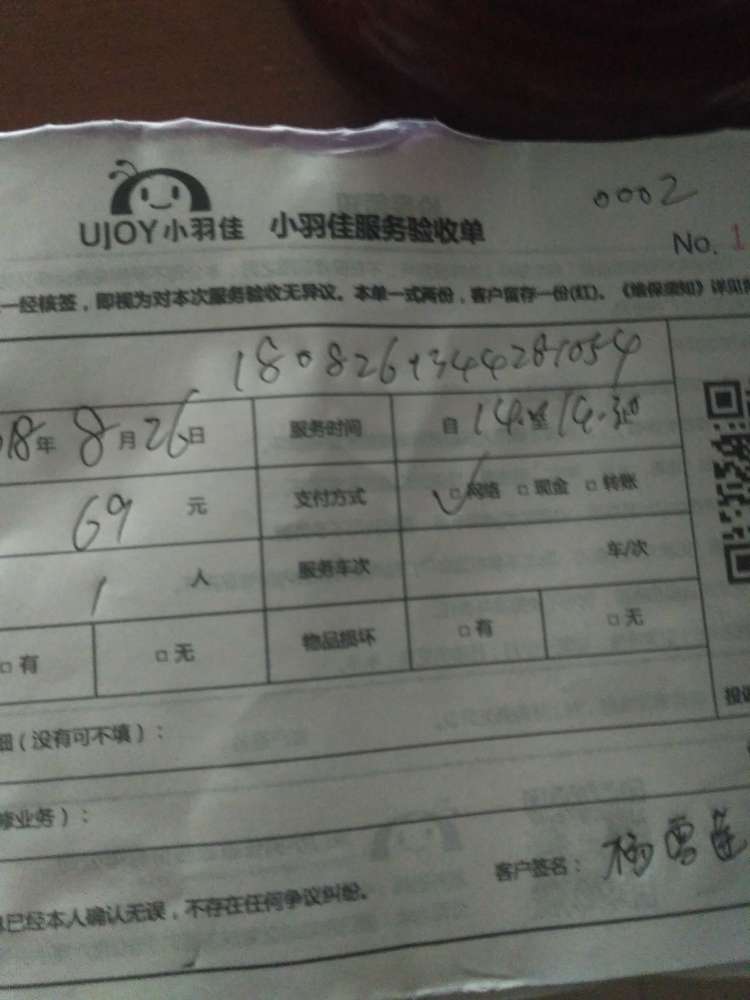 0002
UJOY小羽佳 小羽佳服务验收单
No. 1
一经核签，即视为对本次服务验收无异议。本单一式两份，客户留存一份(红)。《维保须知》详见
1808261344281054
8年8月26日 服务时间 自14至14:30
69元 支付方式 ✓□网络 □现金 □转账
1人 服务车次 年/次
□有 □无 物品损坏 □有 □无
投诉
细（没有可不填）：
修业务）：
客户签名：杨雪莲
已经本人确认无误，不存在任何争议纠纷。